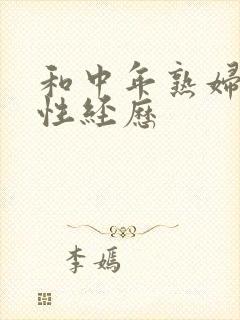 和中年熟婦
性経歷
李嫣